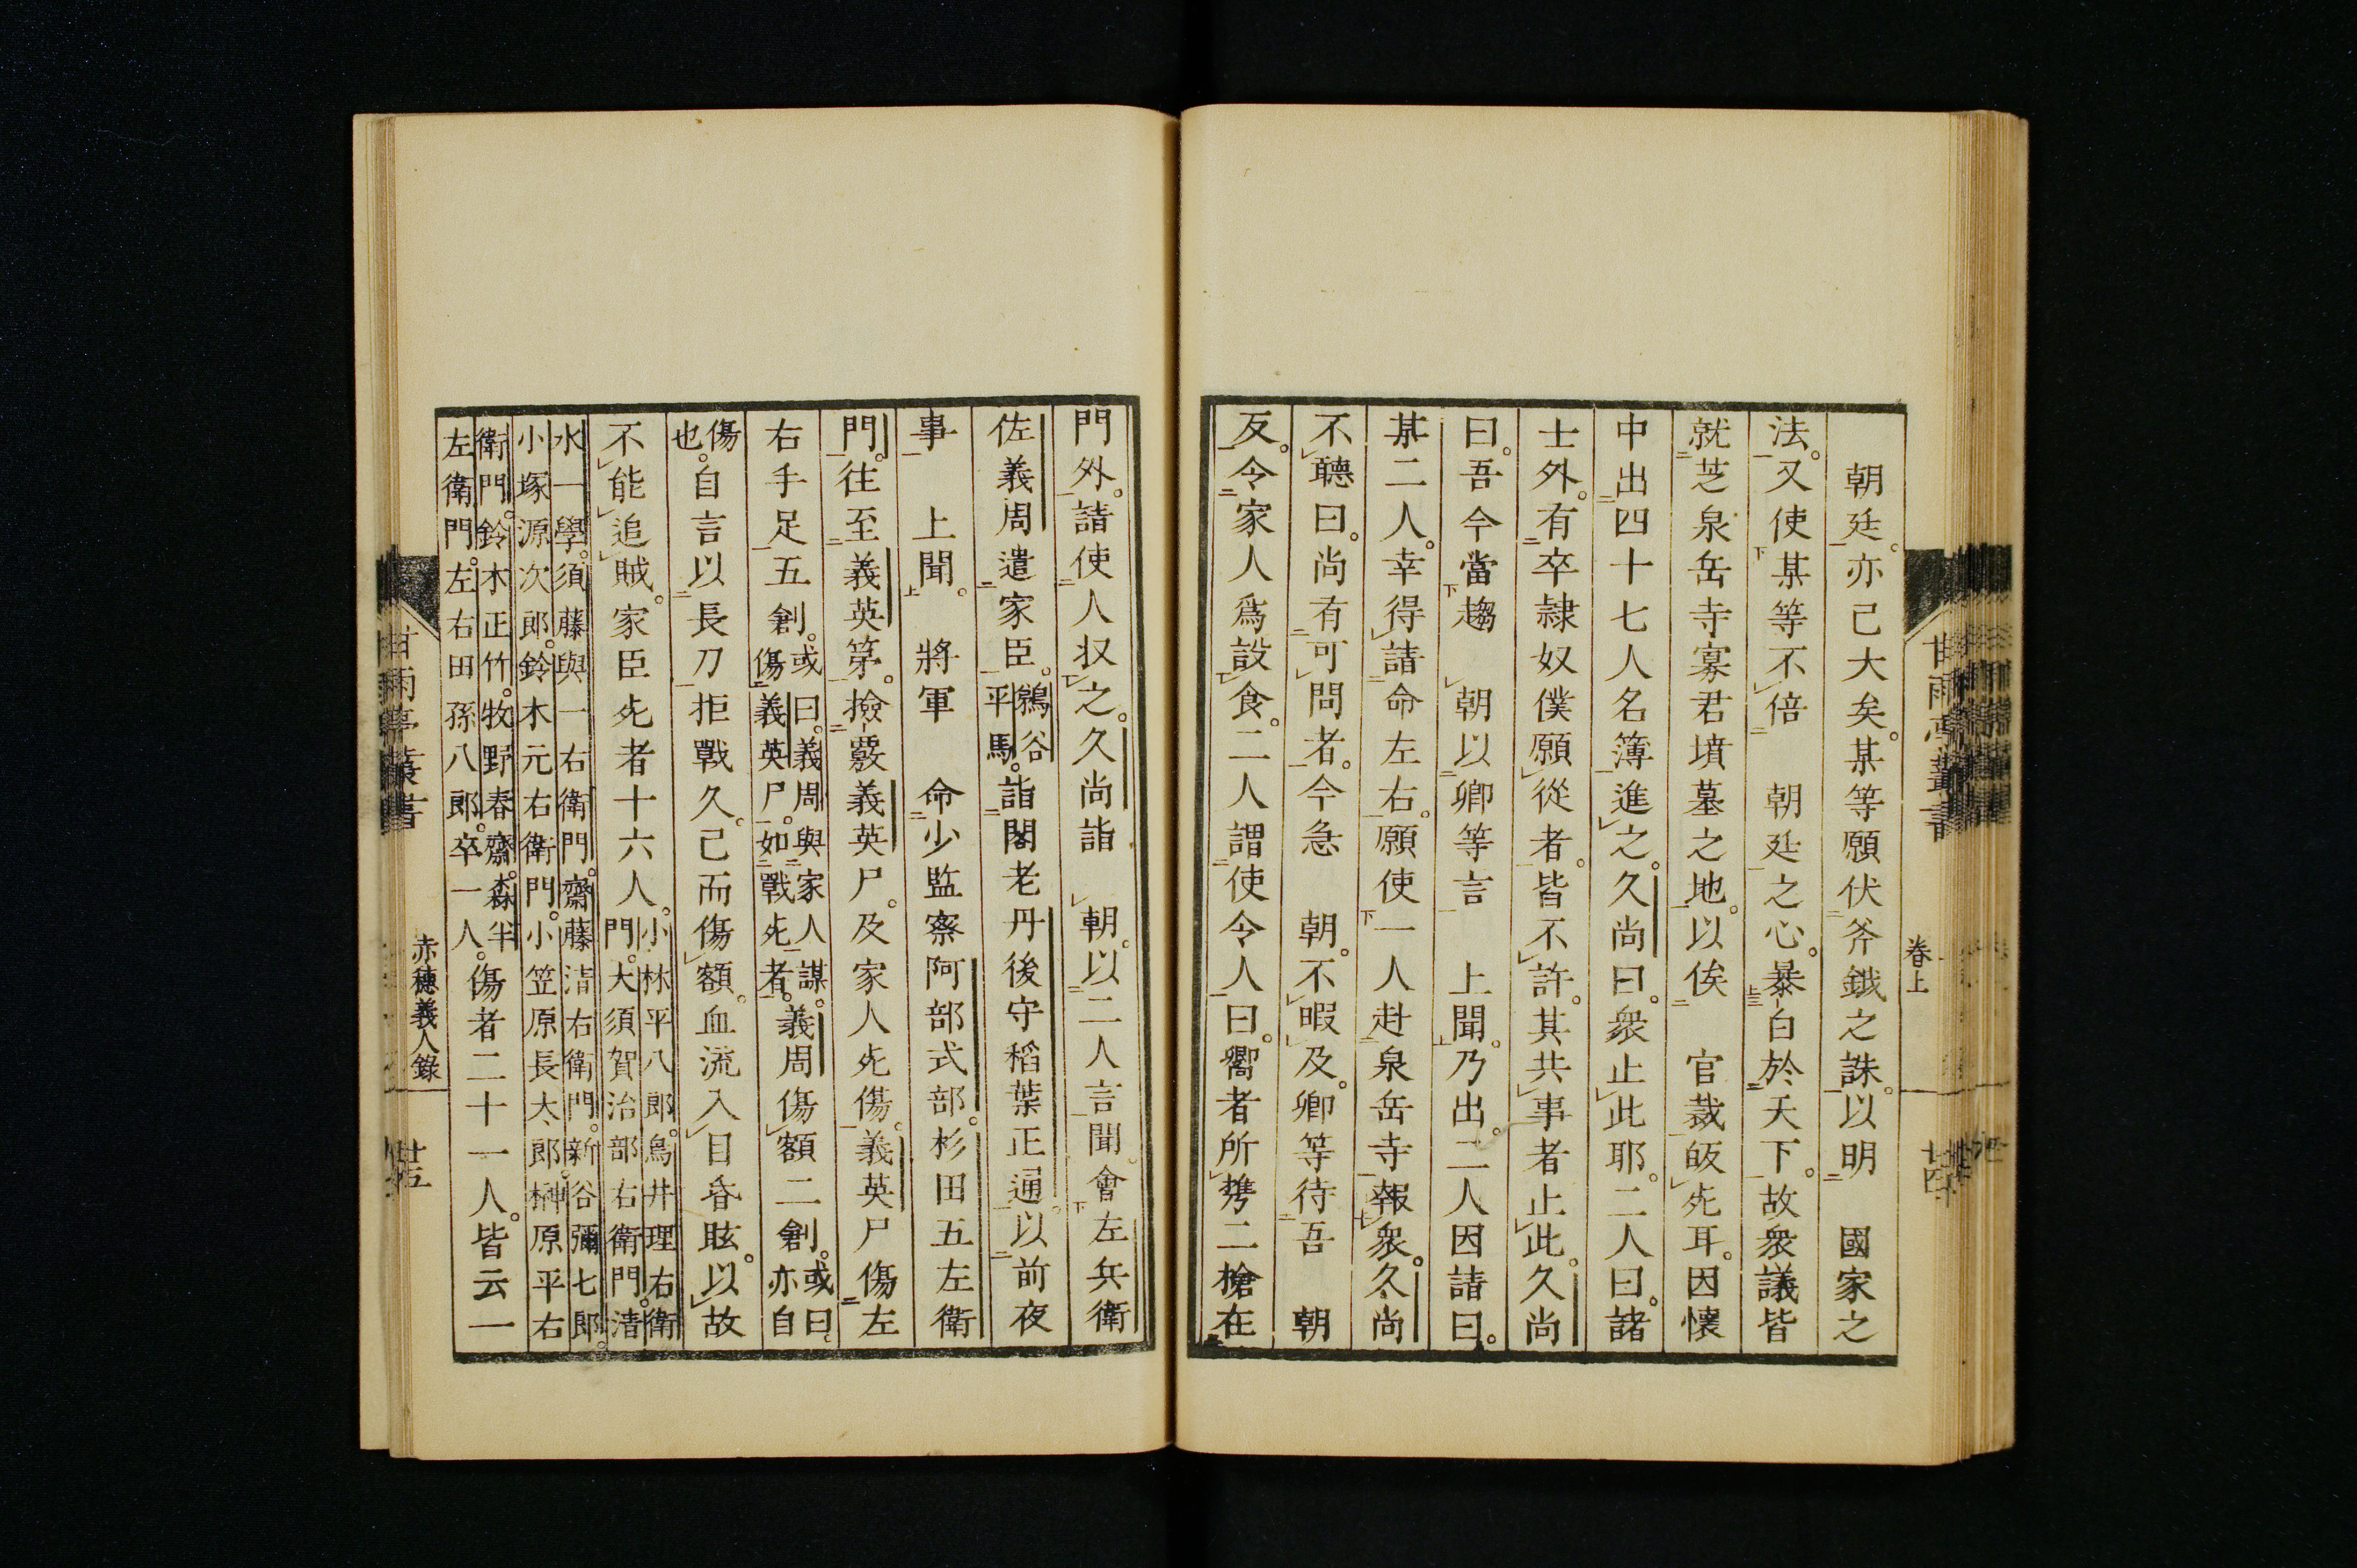 朝廷。亦已大矣。某等願伏斧鉞之誅。以明　國家之
法。又使某等不倍　朝廷之心。暴白於天下。故衆議皆
就芝泉岳寺寡君墳墓之地。以俟　官裁皈死耳。因懷
中出四十七人名簿進之。久尚曰。衆止此耶。二人曰。諸
士外。有卒隷奴僕願從者。皆不許。其共事者止此。久尚
曰。吾今當趨　朝以卿等言　上聞。乃出。二人因請曰。
某二人。幸得請命左右。願使一人赴泉岳寺報衆。久尚
不聽曰。尚有可問者。今急　朝。不暇及。卿等待吾　朝
反。令家人爲設食。二人謂使令人曰。嚮者所携二槍在
卷上
門外。請使人収之。久尚詣　朝。以二人言聞。會左兵衛
佐義周遣家臣。鵜谷平馬。詣閣老丹後守稻葉正通。以前夜
事　上聞。　將軍　命少監察阿部式部。杉田五左衛
門。往至義英第。撿覈義英尸。及家人死傷。義英尸傷左
右手足五創。或曰。義周與家人謀。傷義英尸。如戰死者。義周傷額二創。或曰。亦自
傷也。自言以長刀拒戰久。已而傷額。血流入目昏眩。以故
不能追賊。家臣死者十六人。小林平八郎。鳥井理右衛門。大須賀治部右衛門。清
水一學。須藤與一右衛門。齋藤清右衛門。新谷彌七郎。
小塚源次郎。鈴木元右衛門。小笠原長太郎。榊原平右
衛門。鈴木正竹。牧野春齋。森半
左衛門。左右田孫八郎。卒一人。傷者二十一人。皆云一
甘雨亭叢書
赤穗義人錄